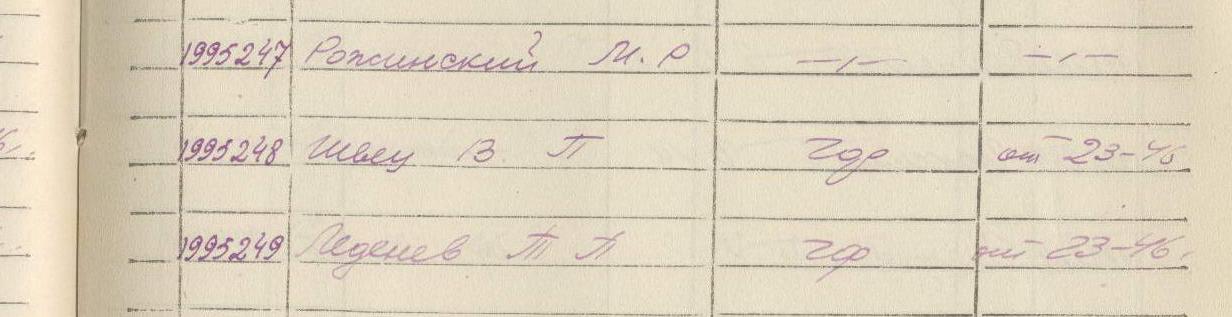 1995247 Рожинский М. Р —,,— —,,—
1995248 Швец В. П от 23-46
1995249 Леденев Т П от 23-46.